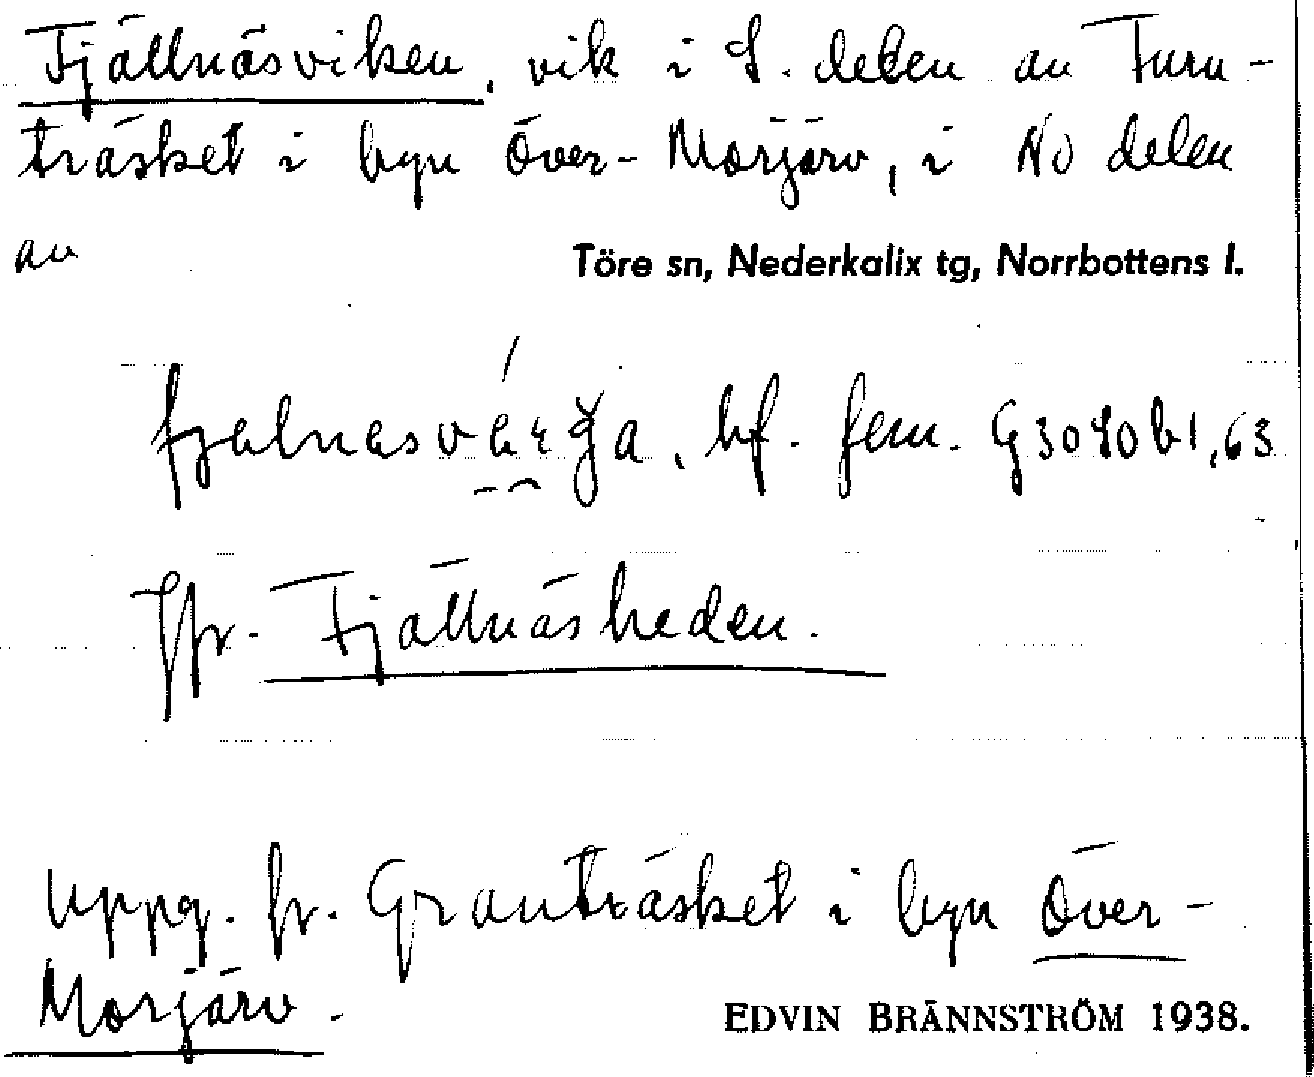 Fjällnäsviken, vik i S. delen av Furu-
träsket i byn Över-Morjärv, i NO delen
av
Töre sn, Nederkalix tg, Norrbottens l.
bf. fem.
Jfr. Fjällnäsheden.
Uppg. fr. Granträsket i byn Över-
Morjärv.
EDVIN BRÄNNSTRÖM 1938.